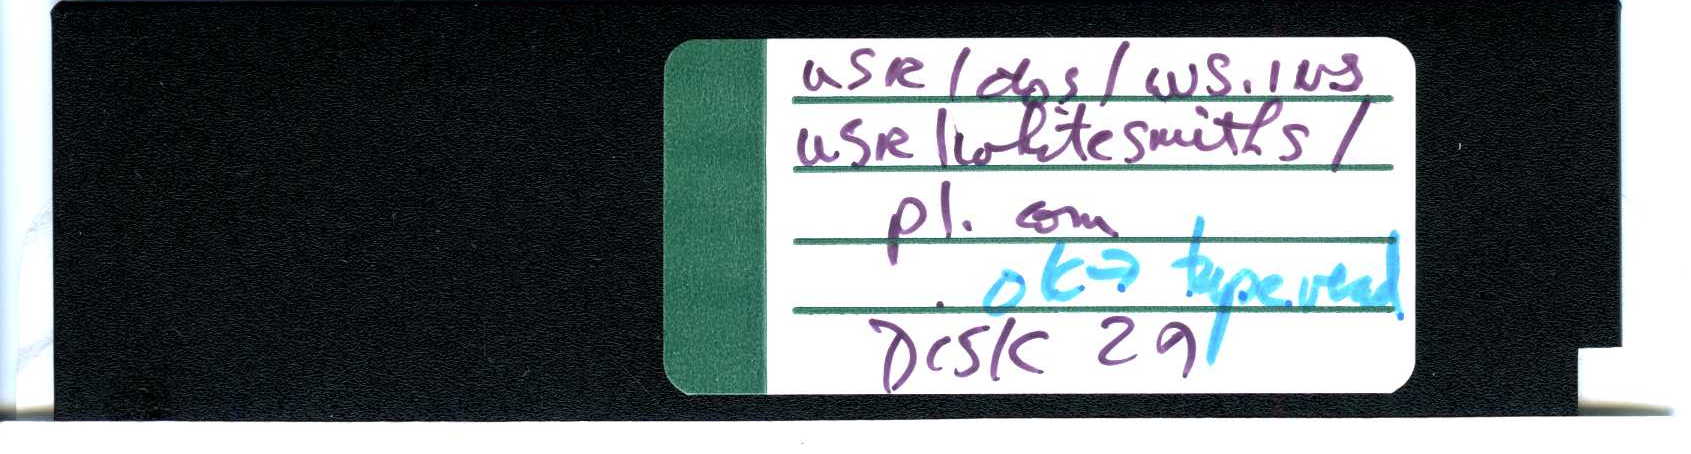 usr/dos/ws.ins
usr/whitesmiths/
pl. com
ok → tape.read
Disk 29